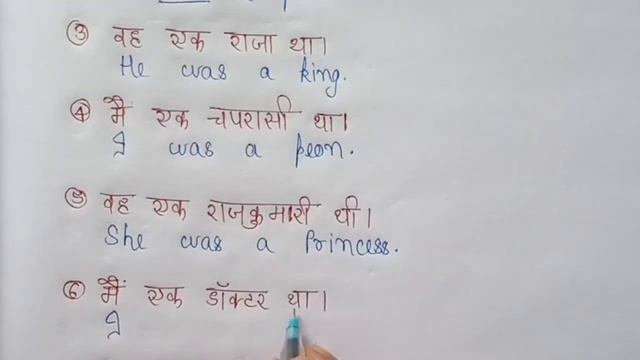 ③ वह एक राजा था।
He was a king.
④ मैं एक चपरासी था।
I was a peon.
⑤ वह एक राजकुमारी थी।
She was a Princess.
⑥ मैं एक डॉक्टर था।
I